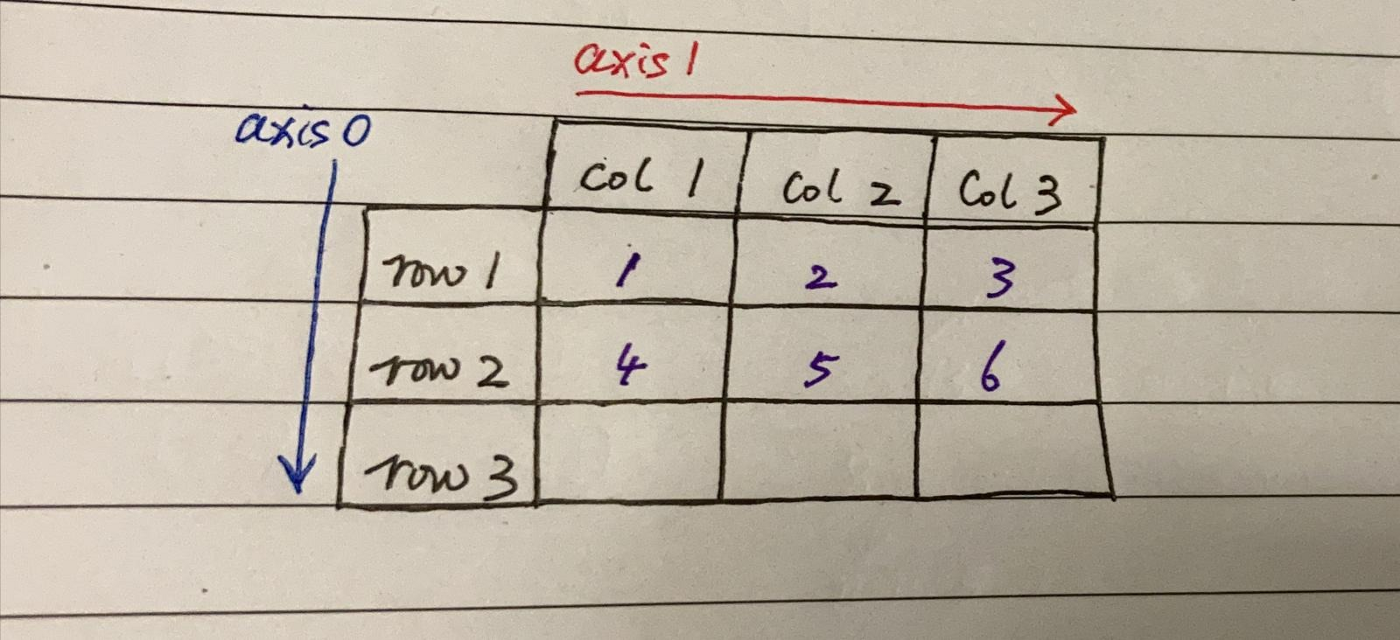 axis 1
axis 0
col 1 col 2 col 3
row 1 1 2 3
row 2 4 5 6
row 3